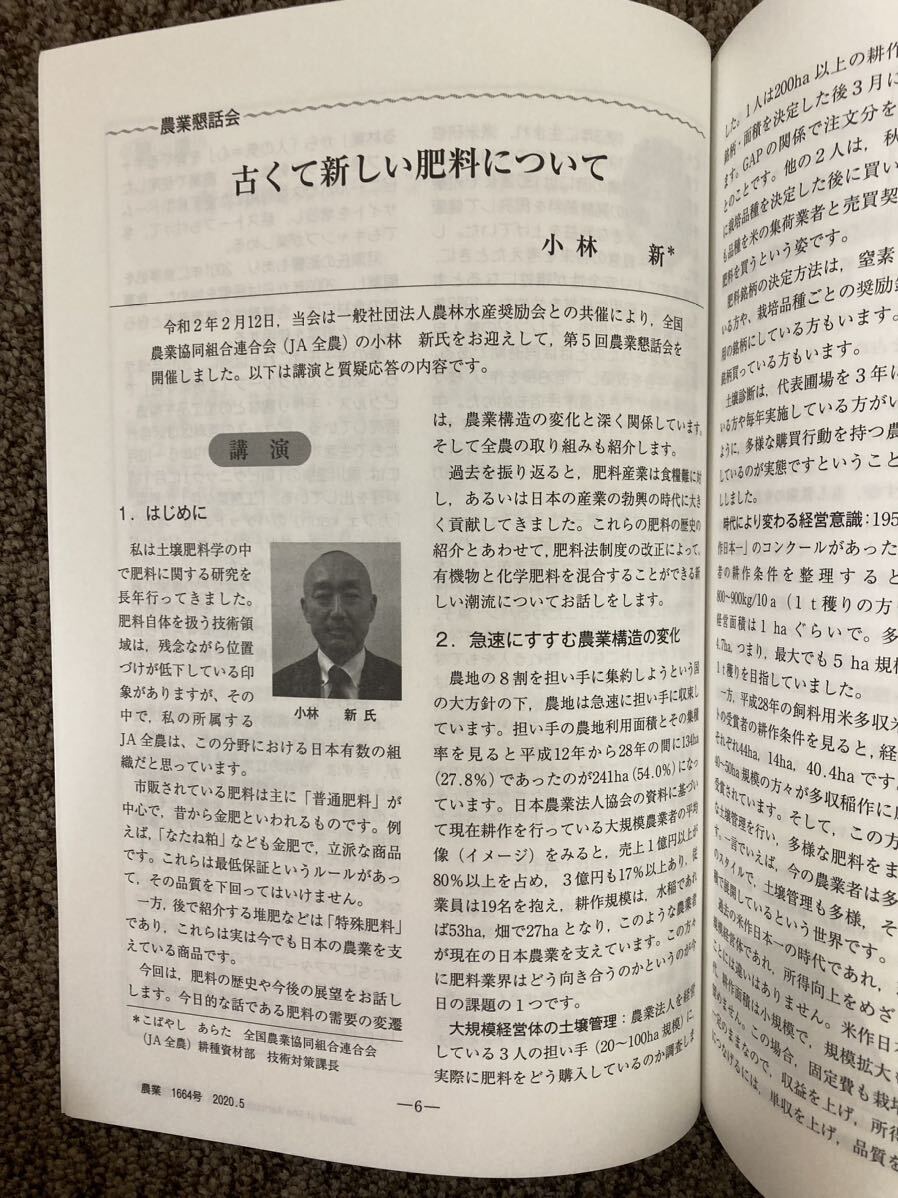 農業懇話会
古くて新しい肥料について
小林 新*
令和2年2月12日，当会は一般社団法人農林水産奨励会との共催により，全国
農業協同組合連合会（JA全農）の小林 新氏をお迎えして，第5回農業懇話会を
開催しました。以下は講演と質疑応答の内容です。
講演
1．はじめに
私は土壌肥料学の中
で肥料に関する研究を
長年行ってきました。
肥料自体を扱う技術領
域は，残念ながら位置
づけが低下している印
象がありますが，その
中で，私の所属する
JA全農は，この分野における日本有数の組
織だと思っています。
小林 新氏
市販されている肥料は主に「普通肥料」が
中心で，昔から金肥といわれるものです。例
えば，「なたね粕」なども金肥で，立派な商品
です。これらは最低保証というルールがあっ
て，その品質を下回ってはいけません。
一方，後で紹介する堆肥などは「特殊肥料」
であり，これらは実は今でも日本の農業を支
えている商品です。
今回は，肥料の歴史や今後の展望をお話し
します。今日的な話である肥料の需要の変遷
*こばやし あらた 全国農業協同組合連合会
（JA全農）耕種資材部 技術対策課長
は，農業構造の変化と深く関係しています。
そして全農の取り組みも紹介します。
過去を振り返ると，肥料産業は食糧難に対
し，あるいは日本の産業の勃興の時代に大き
く貢献してきました。これらの肥料の歴史の
紹介とあわせて，肥料法制度の改正によって，
有機物と化学肥料を混合することができる新
しい潮流についてお話しをします。
2．急速にすすむ農業構造の変化
農地の8割を担い手に集約しようという国
の大方針の下，農地は急速に担い手に収束し
ています。担い手の農地利用面積とその集積
率を見ると平成12年から28年の間に134ha
（27.8%）であったのが241ha（54.0%）になっ
ています。日本農業法人協会の資料に基づい
て現在耕作を行っている大規模農業者の平均
像（イメージ）をみると，売上1億円以上が
80%以上を占め，3億円も17%以上あり，従
業員は19名を抱え，耕作規模は，水稲であれ
ば53ha，畑で27haとなり，このような農業者
が現在の日本農業を支えています。この方々
に肥料業界はどう向き合うのかというのが今
日の課題の1つです。
大規模経営体の土壌管理：農業法人を経営
している3人の担い手（20～100ha規模）に，
実際に肥料をどう購入しているのか調査しま
農業 1664号 2020.5
―6―
した。1人は200ha以上の耕作
銘柄・面積を決定した後3月に
ます。GAPの関係で注文分を
とのことです。他の2人は，秋
に栽培品種を決定した後に買い
も品種を米の集荷業者と売買契
肥料を買うという姿です。
肥料銘柄の決定方法は，窒素
いる方や，栽培品種ごとの奨励銘
用の銘柄にしている方もいます。
銘柄買っている方もいます。
土壌診断は，代表圃場を3年に
いる方や毎年実施している方がい
ように，多様な購買行動を持つ農
しているのが実態ですということ
ししました。
時代により変わる経営意識：195
作日本一」のコンクールがあった
者の耕作条件を整理すると
800～900kg/10a（1t穫りの方も
経営面積は1haぐらいで。多
4.7ha，つまり，最大でも5ha規模
1t穫りを目指していました。
一方，平成28年の飼料用米多収米
トの受賞者の耕作条件を見ると，経
それぞれ44ha，14ha，40.4haです
40～50ha規模の方々が多収稲作に
受賞されています。そして，この方
な土壌管理を行い，多様な肥料をま
す。一言でいえば，今の農業者は多
のスタイルで，土壌管理も多様，そ
種で展開しているという世界です。
過去の米作日本一の時代であれ，
規模経営体であれ，所得向上をめざ
ことには違いはありません。米作日
代，耕作面積は小規模で，規模拡大
望めません。この場合，固定費も栽培
一定のままなので，収益を上げ，所得
につなげるには，単収を上げ，品質を